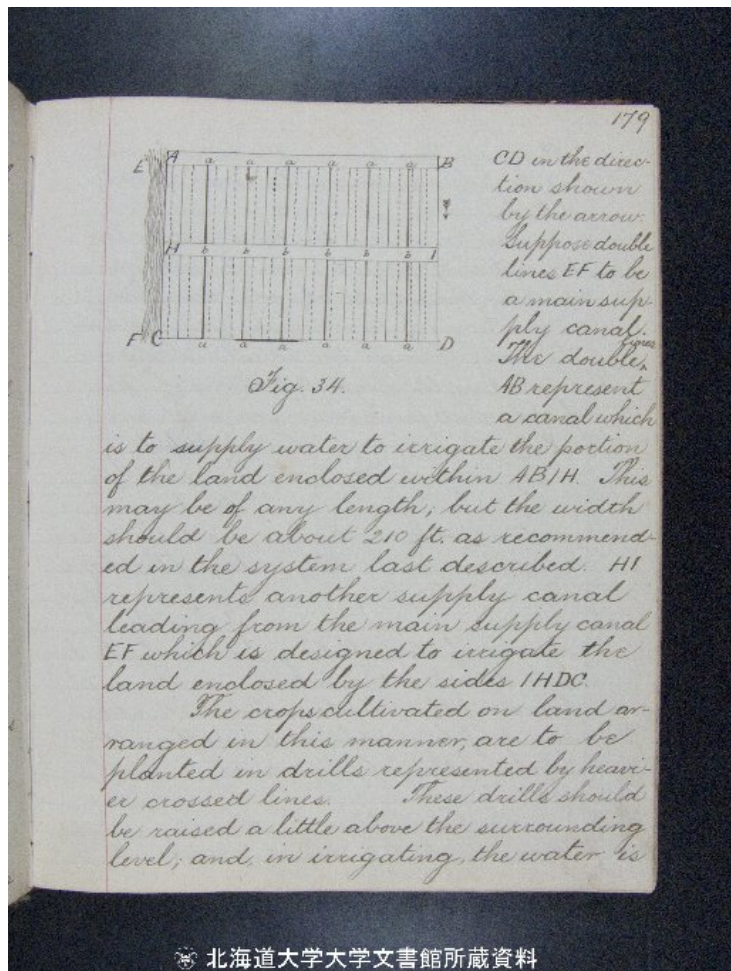 179
E A a a a a a a B
H b b b b b b I
F C a a a a a a D
Fig. 34.
CD in the direc-
tion shown
by the arrow.
Suppose double
lines EF to be
a main sup-
ply canal.
The double lines
AB represent
a canal which
is to supply water to irrigate the portion
of the land enclosed within ABIH. This
may be of any length; but the width
should be about 210 ft. as recommend-
ed in the system last described. HI
represents another supply canal
leading from the main supply canal
EF which is designed to irrigate the
land enclosed by the sides IHDC.
The crops cultivated on land ar-
ranged in this manner, are to be
planted in drills represented by heavi-
er crossed lines. These drills should
be raised a little above the surrounding
level; and, in irrigating, the water is
北海道大学大学文書館所蔵資料